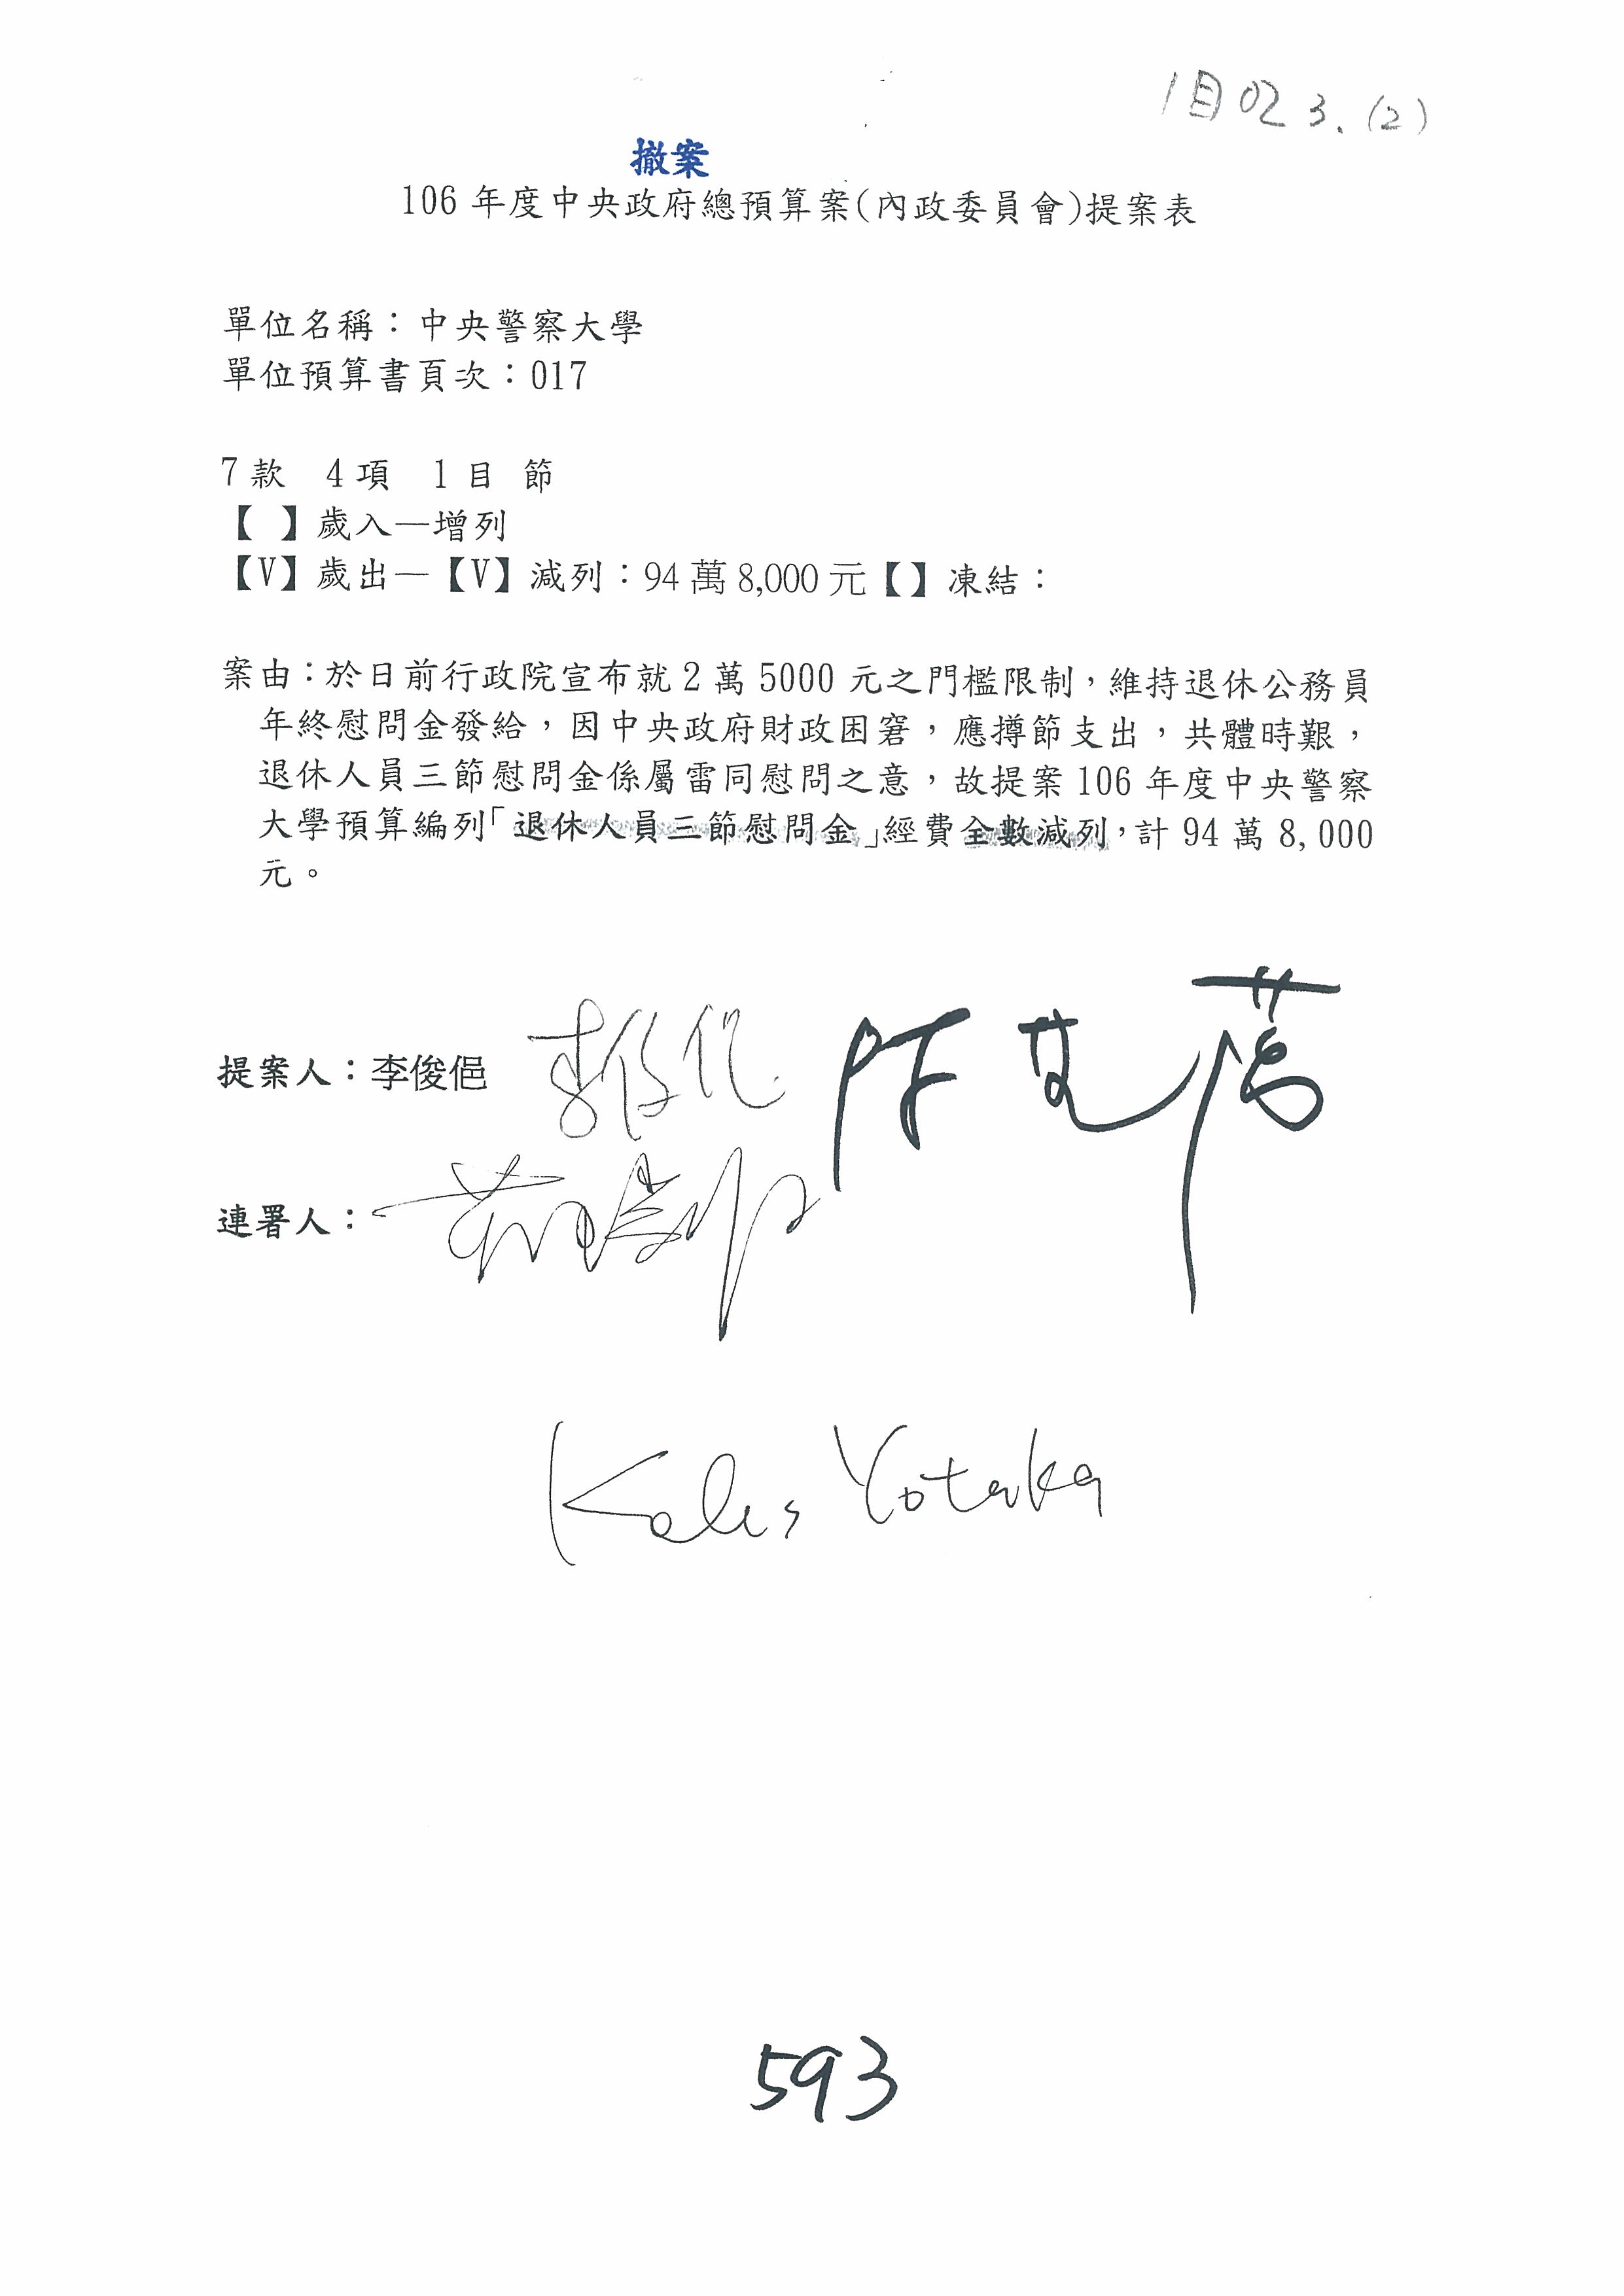 1目02 3.(2)
撤案
106 年度中央政府總預算案(內政委員會)提案表
單位名稱：中央警察大學
單位預算書頁次：017
7款 4項 1目 節
【 】歲入—增列
【V】歲出—【V】減列：94 萬 8,000 元【】凍結：
案由：於日前行政院宣布就 2 萬 5000 元之門檻限制，維持退休公務員
年終慰問金發給，因中央政府財政困窘，應撙節支出，共體時艱，
退休人員三節慰問金係屬雷同慰問之意，故提案 106 年度中央警察
大學預算編列「退休人員三節慰問金」經費全數減列，計 94 萬 8,000
元。
提案人：李俊俋 李俊俋
連署人：
Kolas Yotaka
593